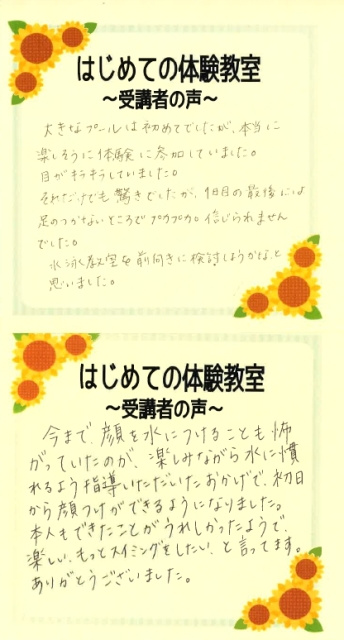 はじめての体験教室
～受講者の声～
大きなプールは初めてでしたが、本当に
楽しそうに体験に参加していました。
目がキラキラしていました。
それだけでも驚きでしたが、1日目の最後には
足のつかないところでプカプカ。信じられません
でした。
水泳教室を前向きに検討しようかなと
思いました。
はじめての体験教室
～受講者の声～
今まで、顔を水につけることも怖
がっていたのが、楽しみながら水に慣
れるよう指導いただいたおかげで、初日
から顔つけができるようになりました。
本人もできたことがうれしかったようで、
楽しい、もっとスイミングをしたい、と言ってます。
ありがとうございました。